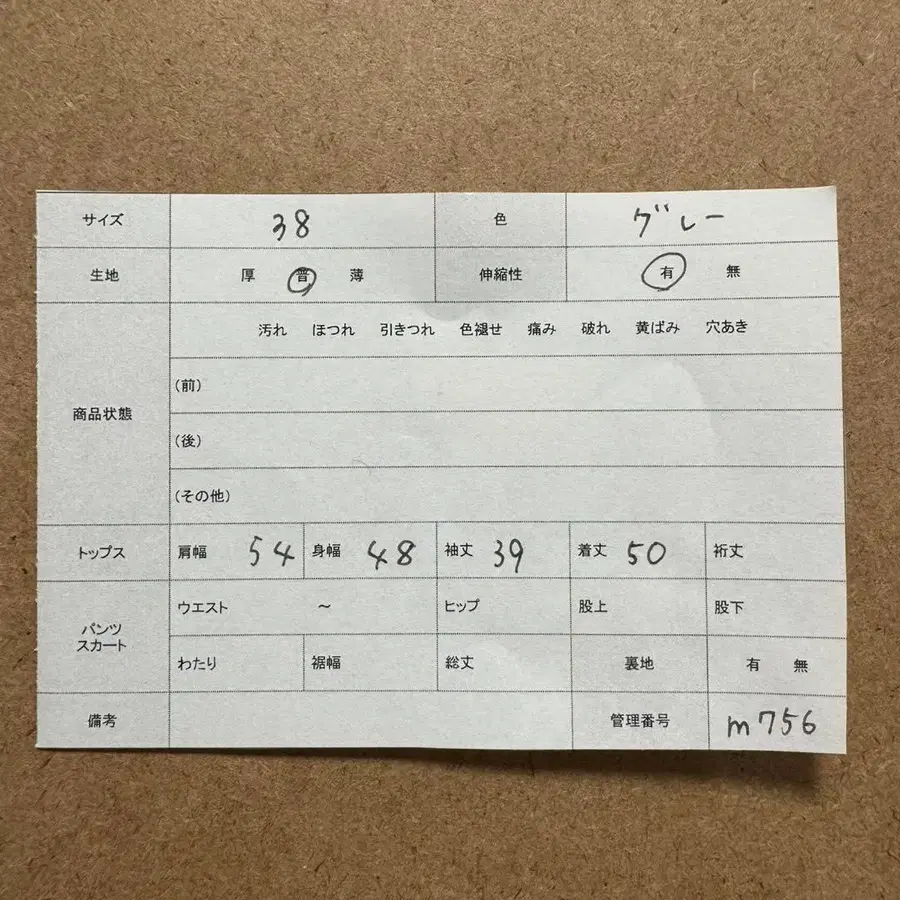 サイズ 38 色 グレー
生地 厚 普 薄 伸縮性 有 無
汚れ ほつれ 引きつれ 色褪せ 痛み 破れ 黄ばみ 穴あき
商品状態
(前)
(後)
(その他)
トップス 肩幅 54 身幅 48 袖丈 39 着丈 50 裄丈
パンツ
スカート
ウエスト ～ ヒップ 股上 股下
わたり 裾幅 総丈 裏地 有 無
備考 管理番号 m756